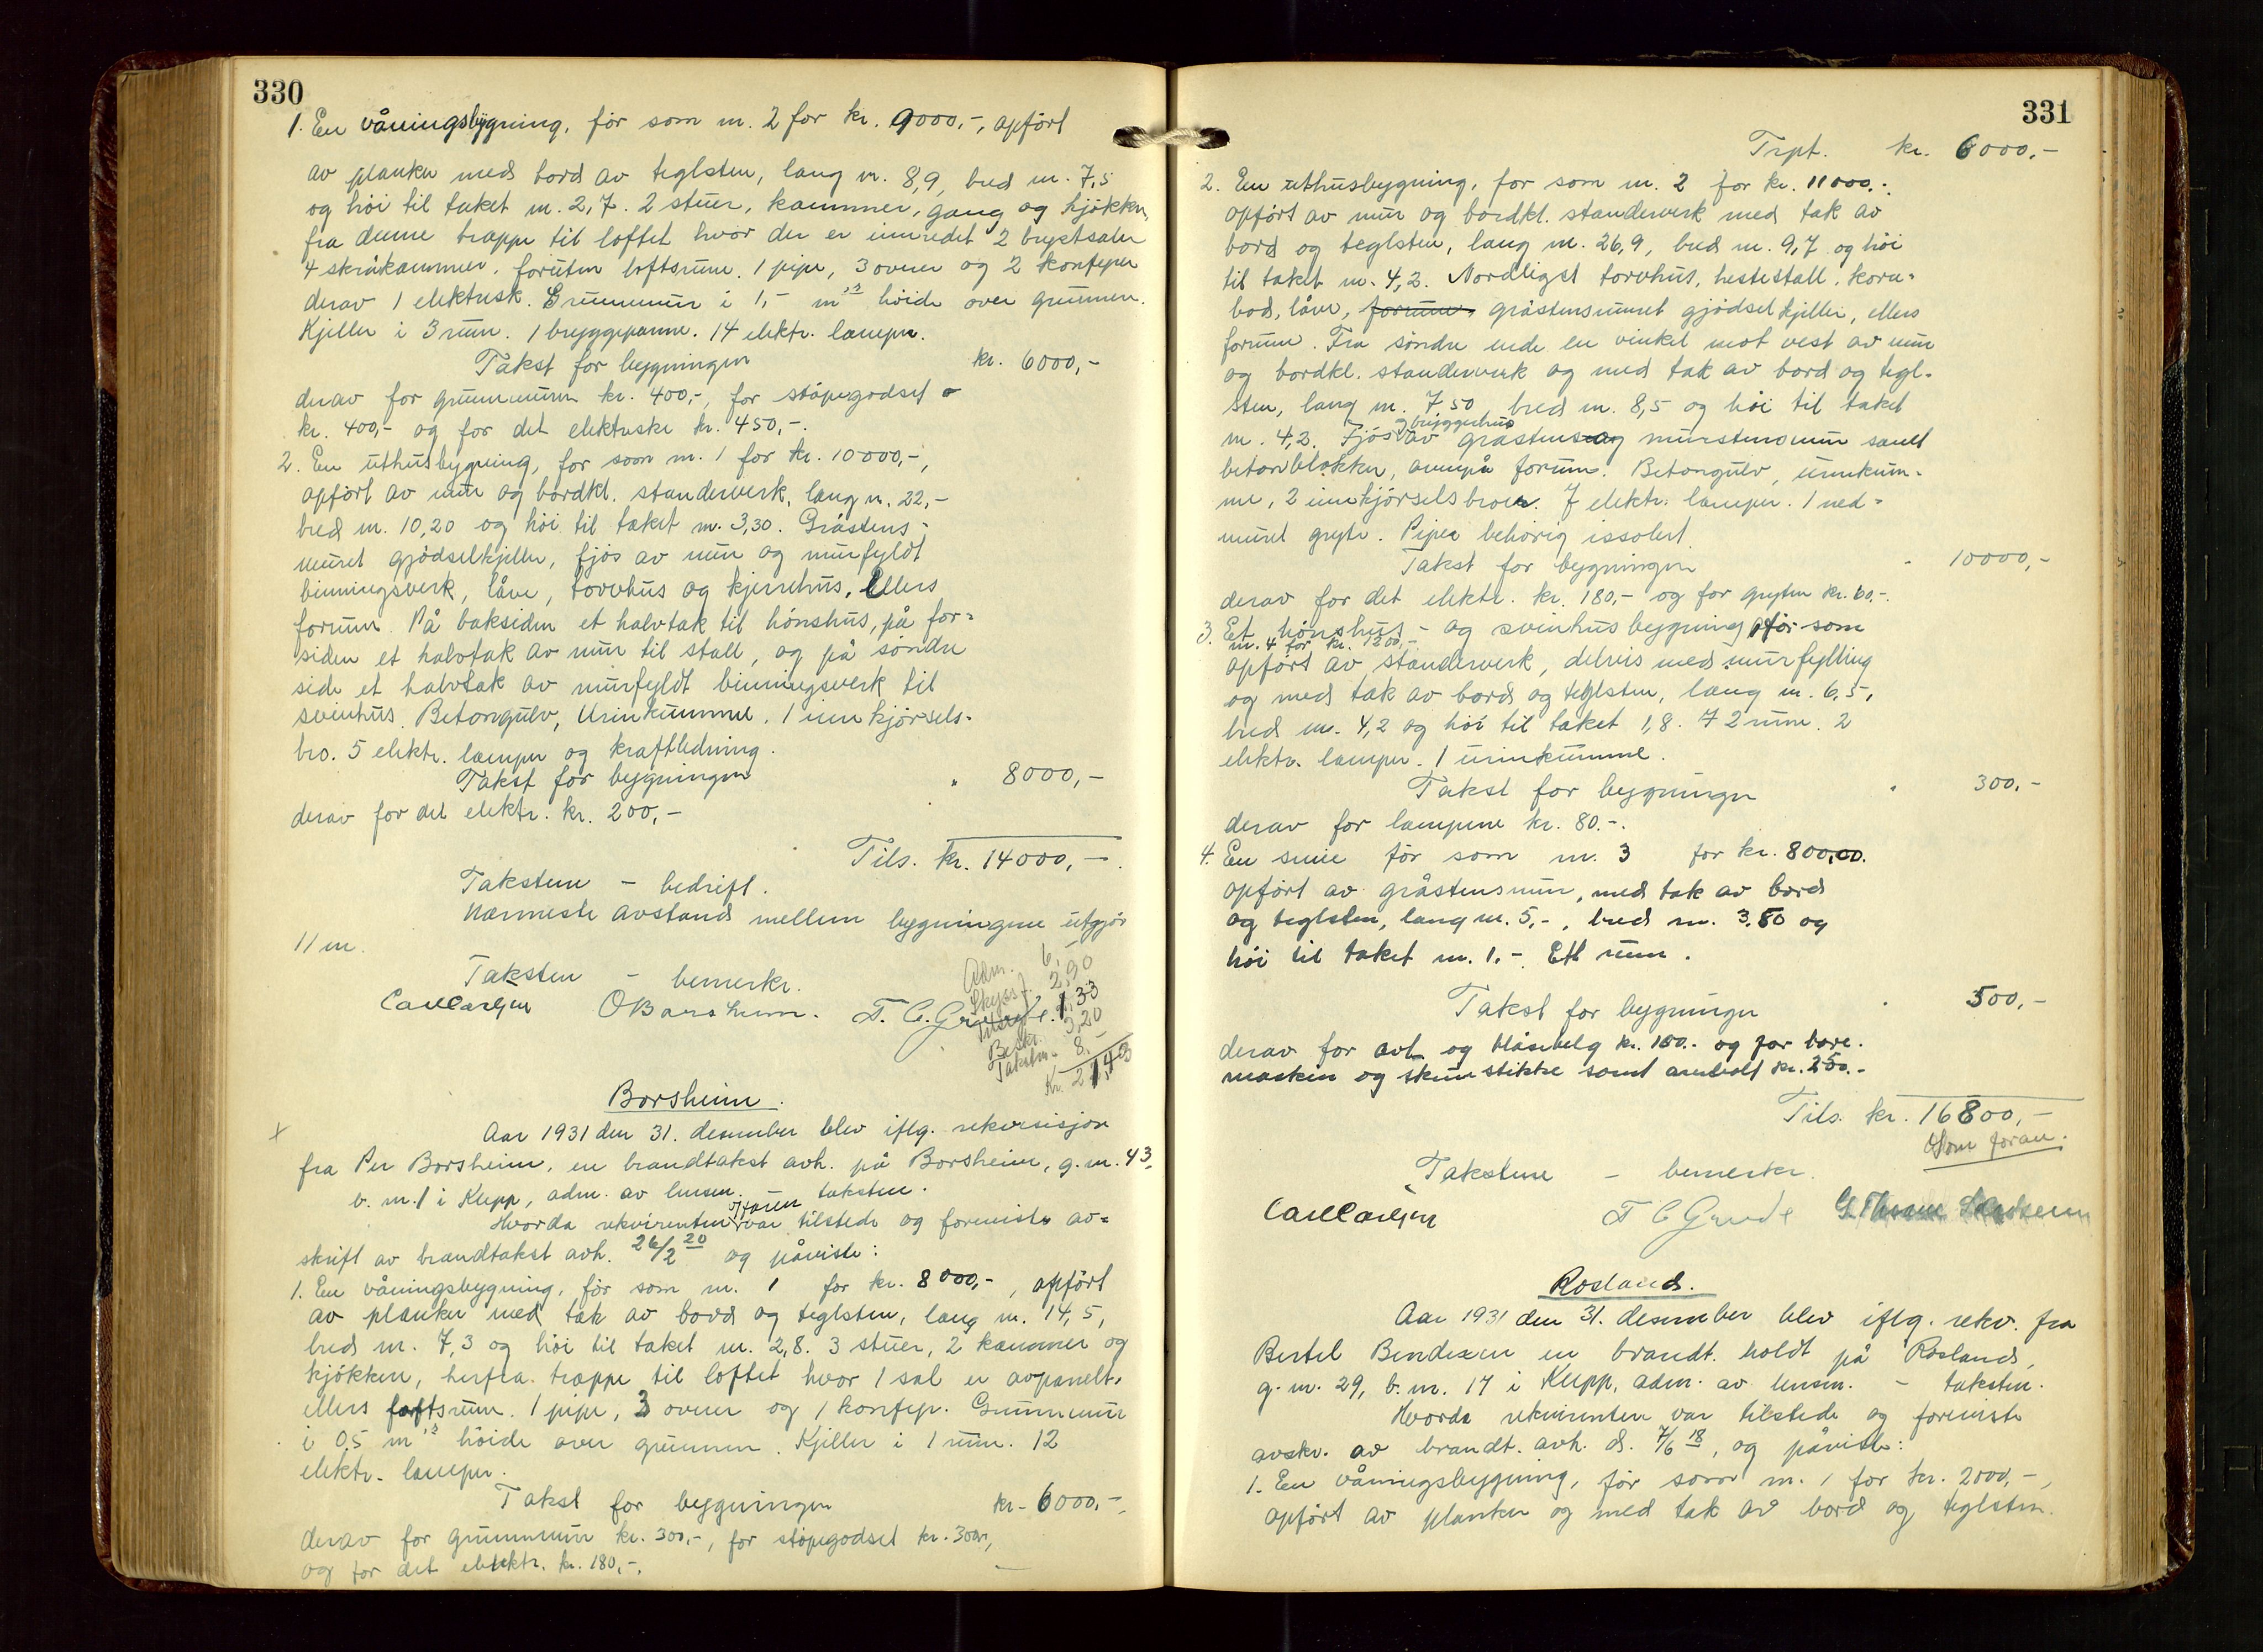 330
1. En våningsbygning, før som m. 2 for kr. 9000,-, opført
av planker med bord av teglsten, lang m. 8,9, bred m. 7,5
og høi til taket m. 2,7. 2 stuer, kammer, gang og kjøkken,
fra denne trappe til loftet hvor der er innredet 2 brystsaler
4 skråkammer, foruten loftsrum. 1 pipe, 3 ovner og 2 komfyrer
derav 1 elektrisk. Grunnmur i 1,- m's høide over grunnen.
Kjeller i 3 rum. 1 bryggepanne. 14 elektr. lamper.
Takst for bygningen kr. 6000,-
derav for grunnmuren kr. 400,-, for støpegodset
kr. 400,- og for det elektriske kr. 450,-.
2. En uthusbygning, for som m. 1 for kr. 10000,-,
opført av mur og bordkl. standerverk, lang m. 22,-
bred m. 10,20 og høi til taket m. 3,30. Gråstens-
muret gjødselkjeller, fjøs av mur og murfyldt
binningsverk, låve, torvhus og kjerrehus. Ellers
forrum. På baksiden et halvtak til hønshus, på for-
siden et halvtak av mur til stall, og på søndre
side et halvtak av murfyldt binningsverk til
svinhus. Betongulv, Urinkumme. 1 innkjørsels-
bro. 5 elektr. lamper og kraftledning.
Takst for bygningen " 8000,-
derav for det elektr. kr. 200,-
Tils. kr. 14000,-.
Takstene - bedrift.
Nærmeste avstand mellem bygningene utgjør
11 m.
Taksten - bemerkr.
Carl Carlsen O Borsheim. T. C. Grude.
Adm. 6,-
Skyss f. 2,90
1,33
Beskr. 3,20
Takstm. 8.-
Kr. 21,43
Borsheim.
x Aar 1931 den 31. desember blev iflg. rekvisisjon
fra Per Borsheim, en brandtakst avh. på Borsheim, g.nr. 43,
b. nr. 1 i Klepp, adm. av lensm. - taksten.
Hvorda rekvirenten o/faren var tilstede og foreviste av-
skrift av brandtakst avh. 26/2 20 og påviste:
1. En våningsbygning, før som m. 1 for kr. 8000,-, opført
av planker med tak av bord og teglsten, lang m. 14,5,
bred m. 7,3 og høi til taket m. 2,8. 3 stuer, 2 kammer og
kjøkken, herfra trappe til loftet hvor 1 sal er avpanelt,
ellers loftsrum. 1 pipe, 3 ovner og 1 komfyr. Grunnmur
i 0,5 m's høide over grunnen. Kjeller i 1 rum. 12
elektr. lamper.
Takst for bygningen kr. 6000,-
derav for grunnmur kr. 300,-, for støpegodset kr. 300,-,
og for det elektr. kr. 180,-.
331
Trpt. kr. 6000,-
2. En uthusbygning, for som m. 2 for kr. 11000,-
opført av mur og bordkl. standerverk med tak av
bord og teglsten, lang m. 26,9, bred m. 9,7 og høi
til taket m. 4,2. Nordligst torvhus, hestestall, korn-
bod, låve, forrum, gråstensmuret gjødselkjeller, ellers
forrum. Fra søndre ende en vinkel mot vest av mur
og bordkl. standerverk og med tak av bord og tegl-
sten, lang m. 7,50, bred m. 8,5 og høi til taket
m. 4,2. Fjøs og bryggerhus av gråstens og murstensmur samt
betonblokker, ovenpå forrum. Betongulv, urinkum-
me, 2 innkjørselsbroer. 7 elektr. lamper. 1 ned-
muret gryte. Pipen behørig issolert.
Takst for bygningen " 10000,-
derav for det elektr. kr. 180,- og for gryten kr. 60,-.
3. Et hønshus- og svinhusbygning før som
m. 4 for kr. 1200,-
opført av standerverk, delvis med murfylling
og med tak av bord og teglsten, lang m. 6,5,
bred m. 4,2 og høi til taket 1,8. 2 rum. 2
elektr. lamper. 1 urinkumme.
Takst for bygningen " 300,-
derav for lampene kr. 80.-.
4. En smie før som m. 3 for kr. 800,00.
opført av gråstensmur, med tak av bord
og teglsten, lang m. 5,-, bred m. 3.80 og
høi til taket m. 1.-. Ett rum.
Takst for bygningen " 500,-
derav for avl og blåsebelg kr. 100.- og for bore-
maskin og skruestikke samt ambolt kr. 250.-
Tils. kr. 16800,-
Som foran.
Takstene - bemerkr.
Carl Carlsen T C Grude
Rosland.
Aar 1931 den 31. desember blev iflg. rekv. fra
Bertel Bendixen en brandt. holdt på Rosland,
g. nr. 29, b. nr. 17 i Klepp, adm. av lensm. - taksten.
Hvorda rekvirenten var tilstede og foreviste
avskr. av brandt. avh. d. 7/6 18, og påviste:
1. En våningsbygning, før som m. 1 for kr. 2000,-,
opført av planker og med tak av bord og teglsten.